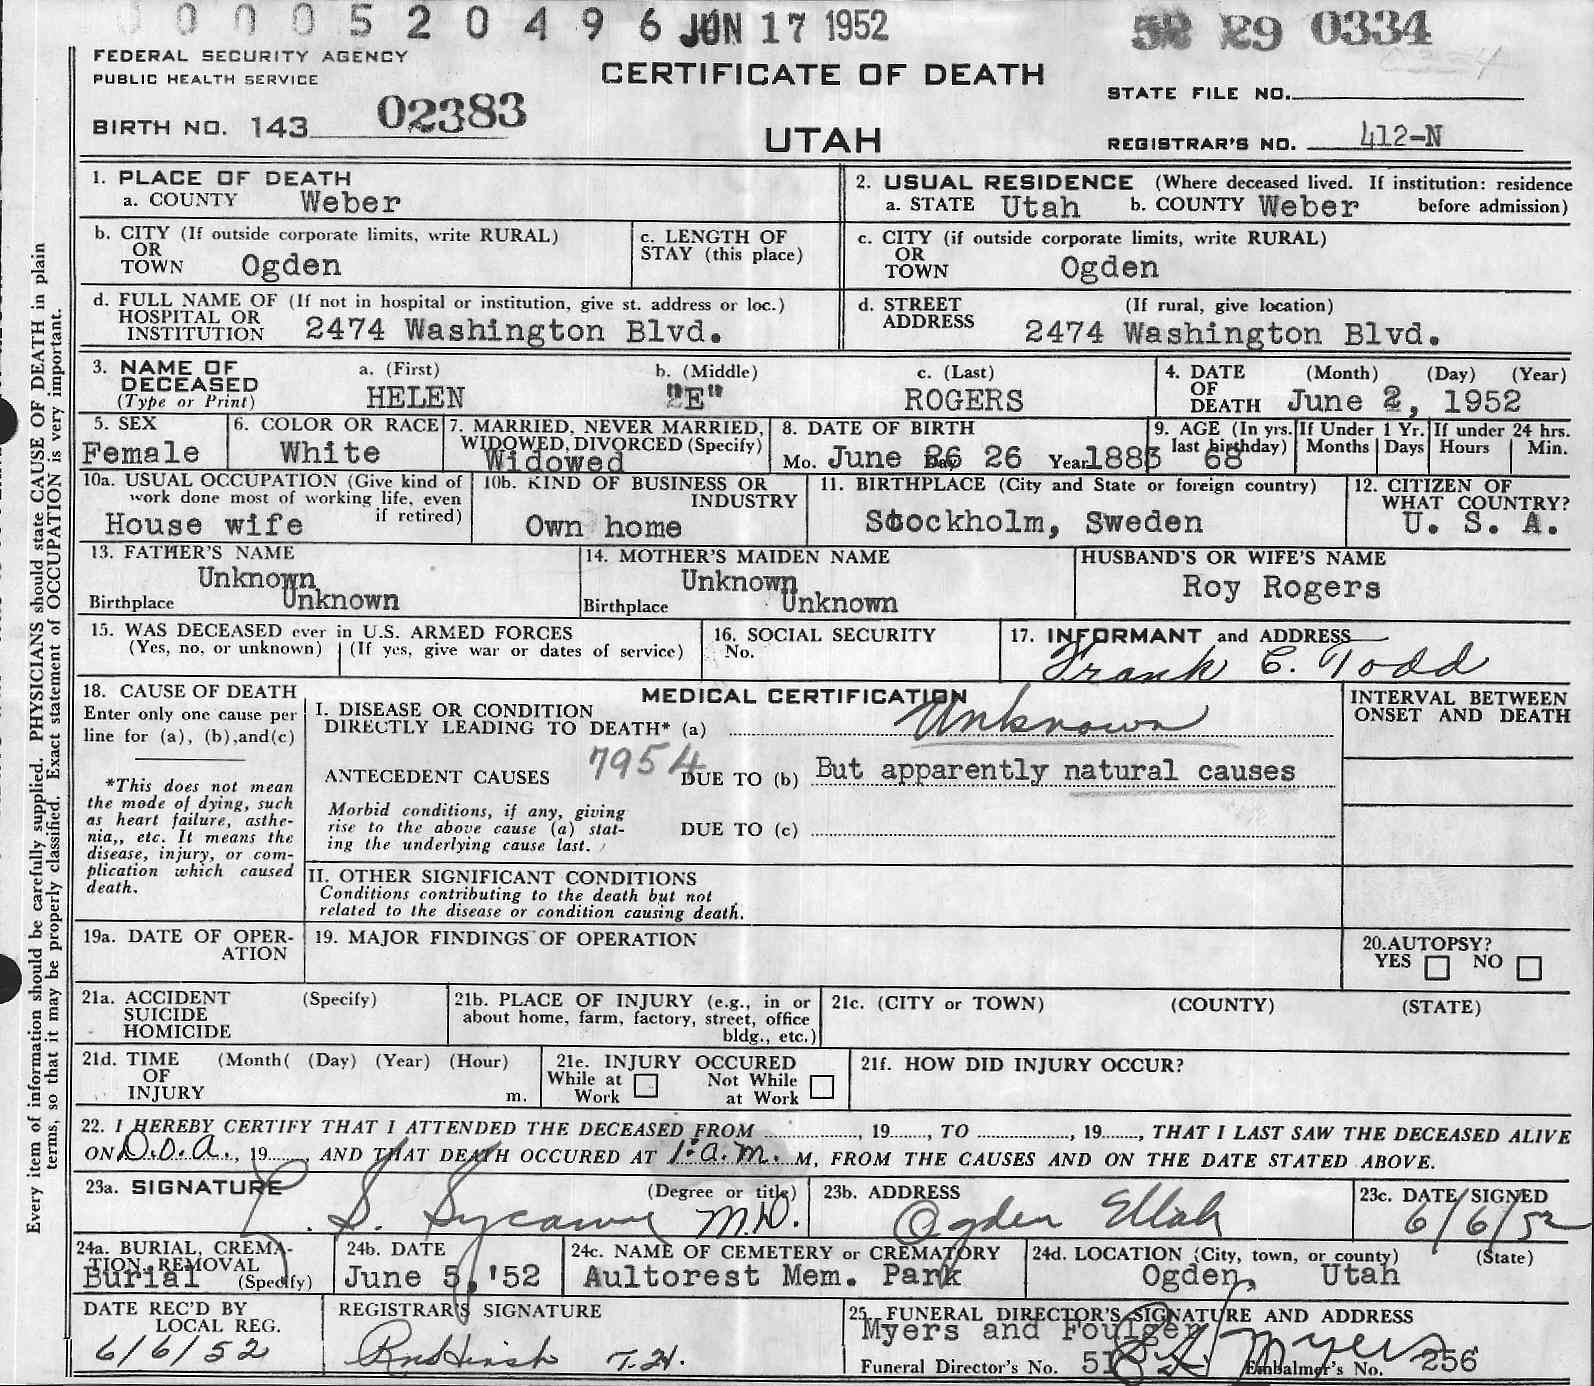 0 0 0 0 5 2 0 4 9 6 JUN 17 1952
52 29 0334
FEDERAL SECURITY AGENCY
PUBLIC HEALTH SERVICE
CERTIFICATE OF DEATH
STATE FILE NO.
BIRTH NO. 143 02383
UTAH
REGISTRAR'S NO. 412-N
1. PLACE OF DEATH
a. COUNTY Weber
2. USUAL RESIDENCE (Where deceased lived. If institution: residence
a. STATE Utah b. COUNTY Weber before admission)
b. CITY (If outside corporate limits, write RURAL)
OR
TOWN Ogden
c. LENGTH OF
STAY (this place)
c. CITY (if outside corporate limits, write RURAL)
OR
TOWN Ogden
d. FULL NAME OF (If not in hospital or institution, give st. address or loc.)
HOSPITAL OR
INSTITUTION 2474 Washington Blvd.
d. STREET (If rural, give location)
ADDRESS 2474 Washington Blvd.
3. NAME OF
DECEASED
(Type or Print)
a. (First)
HELEN
b. (Middle)
"E"
c. (Last)
ROGERS
4. DATE (Month) (Day) (Year)
OF
DEATH June 2, 1952
5. SEX
Female
6. COLOR OR RACE
White
7. MARRIED, NEVER MARRIED,
WIDOWED, DIVORCED (Specify)
Widowed
8. DATE OF BIRTH
Mo. June Day 26 26 Year 1883
9. AGE (In yrs.
last birthday) 68
If Under 1 Yr.
Months Days
If under 24 hrs.
Hours Min.
10a. USUAL OCCUPATION (Give kind of
work done most of working life, even
if retired)
House wife
10b. KIND OF BUSINESS OR
INDUSTRY
Own home
11. BIRTHPLACE (City and State or foreign country)
Stockholm, Sweden
12. CITIZEN OF
WHAT COUNTRY?
U. S. A.
13. FATHER'S NAME
Unknown
Birthplace Unknown
14. MOTHER'S MAIDEN NAME
Unknown
Birthplace Unknown
HUSBAND'S OR WIFE'S NAME
Roy Rogers
15. WAS DECEASED ever in U.S. ARMED FORCES
(Yes, no, or unknown) (If yes, give war or dates of service)
16. SOCIAL SECURITY
No.
17. INFORMANT and ADDRESS
Frank C. Todd
18. CAUSE OF DEATH
Enter only one cause per
line for (a), (b), and (c)
*This does not mean
the mode of dying, such
as heart failure, asthe-
nia,, etc. It means the
disease, injury, or com-
plication which caused
death.
MEDICAL CERTIFICATION
I. DISEASE OR CONDITION
DIRECTLY LEADING TO DEATH* (a) Unknown
7954
ANTECEDENT CAUSES DUE TO (b) But apparently natural causes
Morbid conditions, if any, giving
rise to the above cause (a) stat-
ing the underlying cause last.
DUE TO (c)
II. OTHER SIGNIFICANT CONDITIONS
Conditions contributing to the death but not
related to the disease or condition causing death.
INTERVAL BETWEEN
ONSET AND DEATH
19a. DATE OF OPER-
ATION
19. MAJOR FINDINGS OF OPERATION
20. AUTOPSY?
YES NO
21a. ACCIDENT (Specify)
SUICIDE
HOMICIDE
21b. PLACE OF INJURY (e.g., in or
about home, farm, factory, street, office
bldg., etc.)
21c. (CITY or TOWN) (COUNTY) (STATE)
21d. TIME (Month( (Day) (Year) (Hour)
OF
INJURY m.
21e. INJURY OCCURED
While at Work Not While at Work
21f. HOW DID INJURY OCCUR?
22. I HEREBY CERTIFY THAT I ATTENDED THE DECEASED FROM , 19 , TO , 19 , THAT I LAST SAW THE DECEASED ALIVE
ON D.O.A., 19 , AND THAT DEATH OCCURED AT 1: a.m. M, FROM THE CAUSES AND ON THE DATE STATED ABOVE.
23a. SIGNATURE (Degree or title)
S. M.D.
23b. ADDRESS
Ogden Utah
23c. DATE SIGNED
6/6/52
24a. BURIAL, CREMA-
TION, REMOVAL
Burial (Specify)
24b. DATE
June 5, '52
24c. NAME OF CEMETERY or CREMATORY
Aultorest Mem. Park
24d. LOCATION (City, town, or county) (State)
Ogden, Utah
DATE REC'D BY
LOCAL REG.
6/6/52
REGISTRAR'S SIGNATURE
T.H.
25. FUNERAL DIRECTOR'S SIGNATURE AND ADDRESS
Myers and Foulger Myers
Funeral Director's No. 51 Embalmer's No. 256
Every item of information should be carefully supplied. PHYSICIANS should state CAUSE OF DEATH in plain
terms, so that it may be properly classified. Exact statement of OCCUPATION is very important.